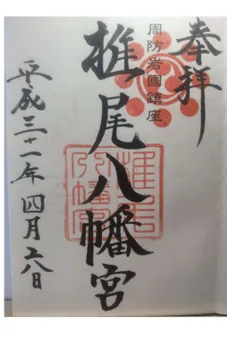 奉拝
周防岩國鎮座
椎尾八幡宮
平成三十一年四月二八日
椎尾八幡宮